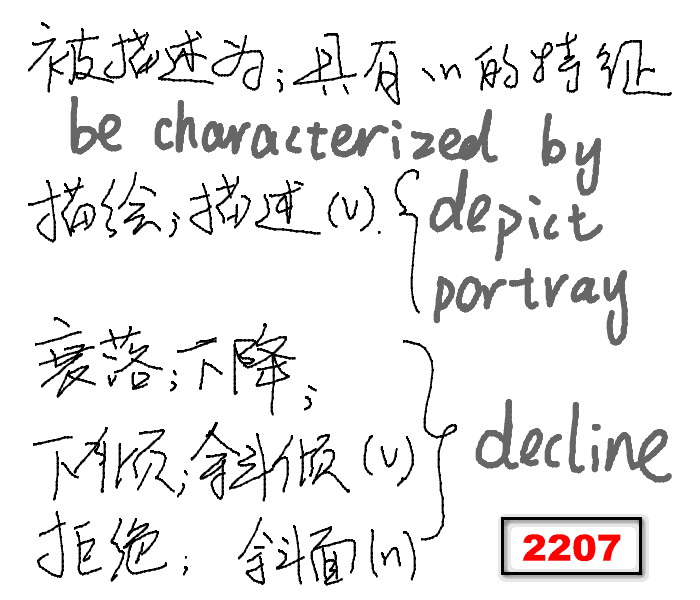 被描述为；具有…的特征
be characterized by
描绘；描述(v).
depict
portray
衰落；下降；
下倾；斜倾(v)
拒绝；斜面(n)
decline
2207